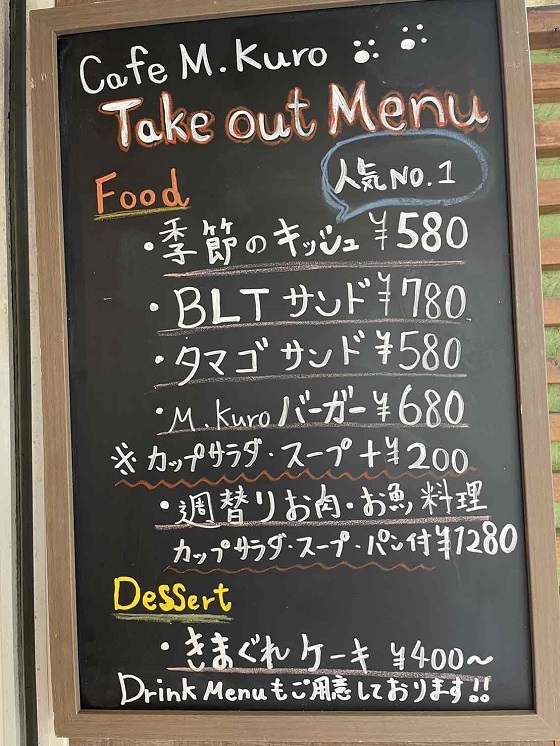 Cafe M.Kuro
Take out Menu
人気No.1
Food
・季節のキッシュ ¥580
・BLTサンド ¥780
・タマゴサンド ¥580
・M.Kuroバーガー ¥680
※カップサラダ・スープ+¥200
・週替りお肉・お魚料理
カップサラダ・スープ・パン付¥1280
Dessert
・きまぐれケーキ ¥400～
Drink Menuもご用意しております!!